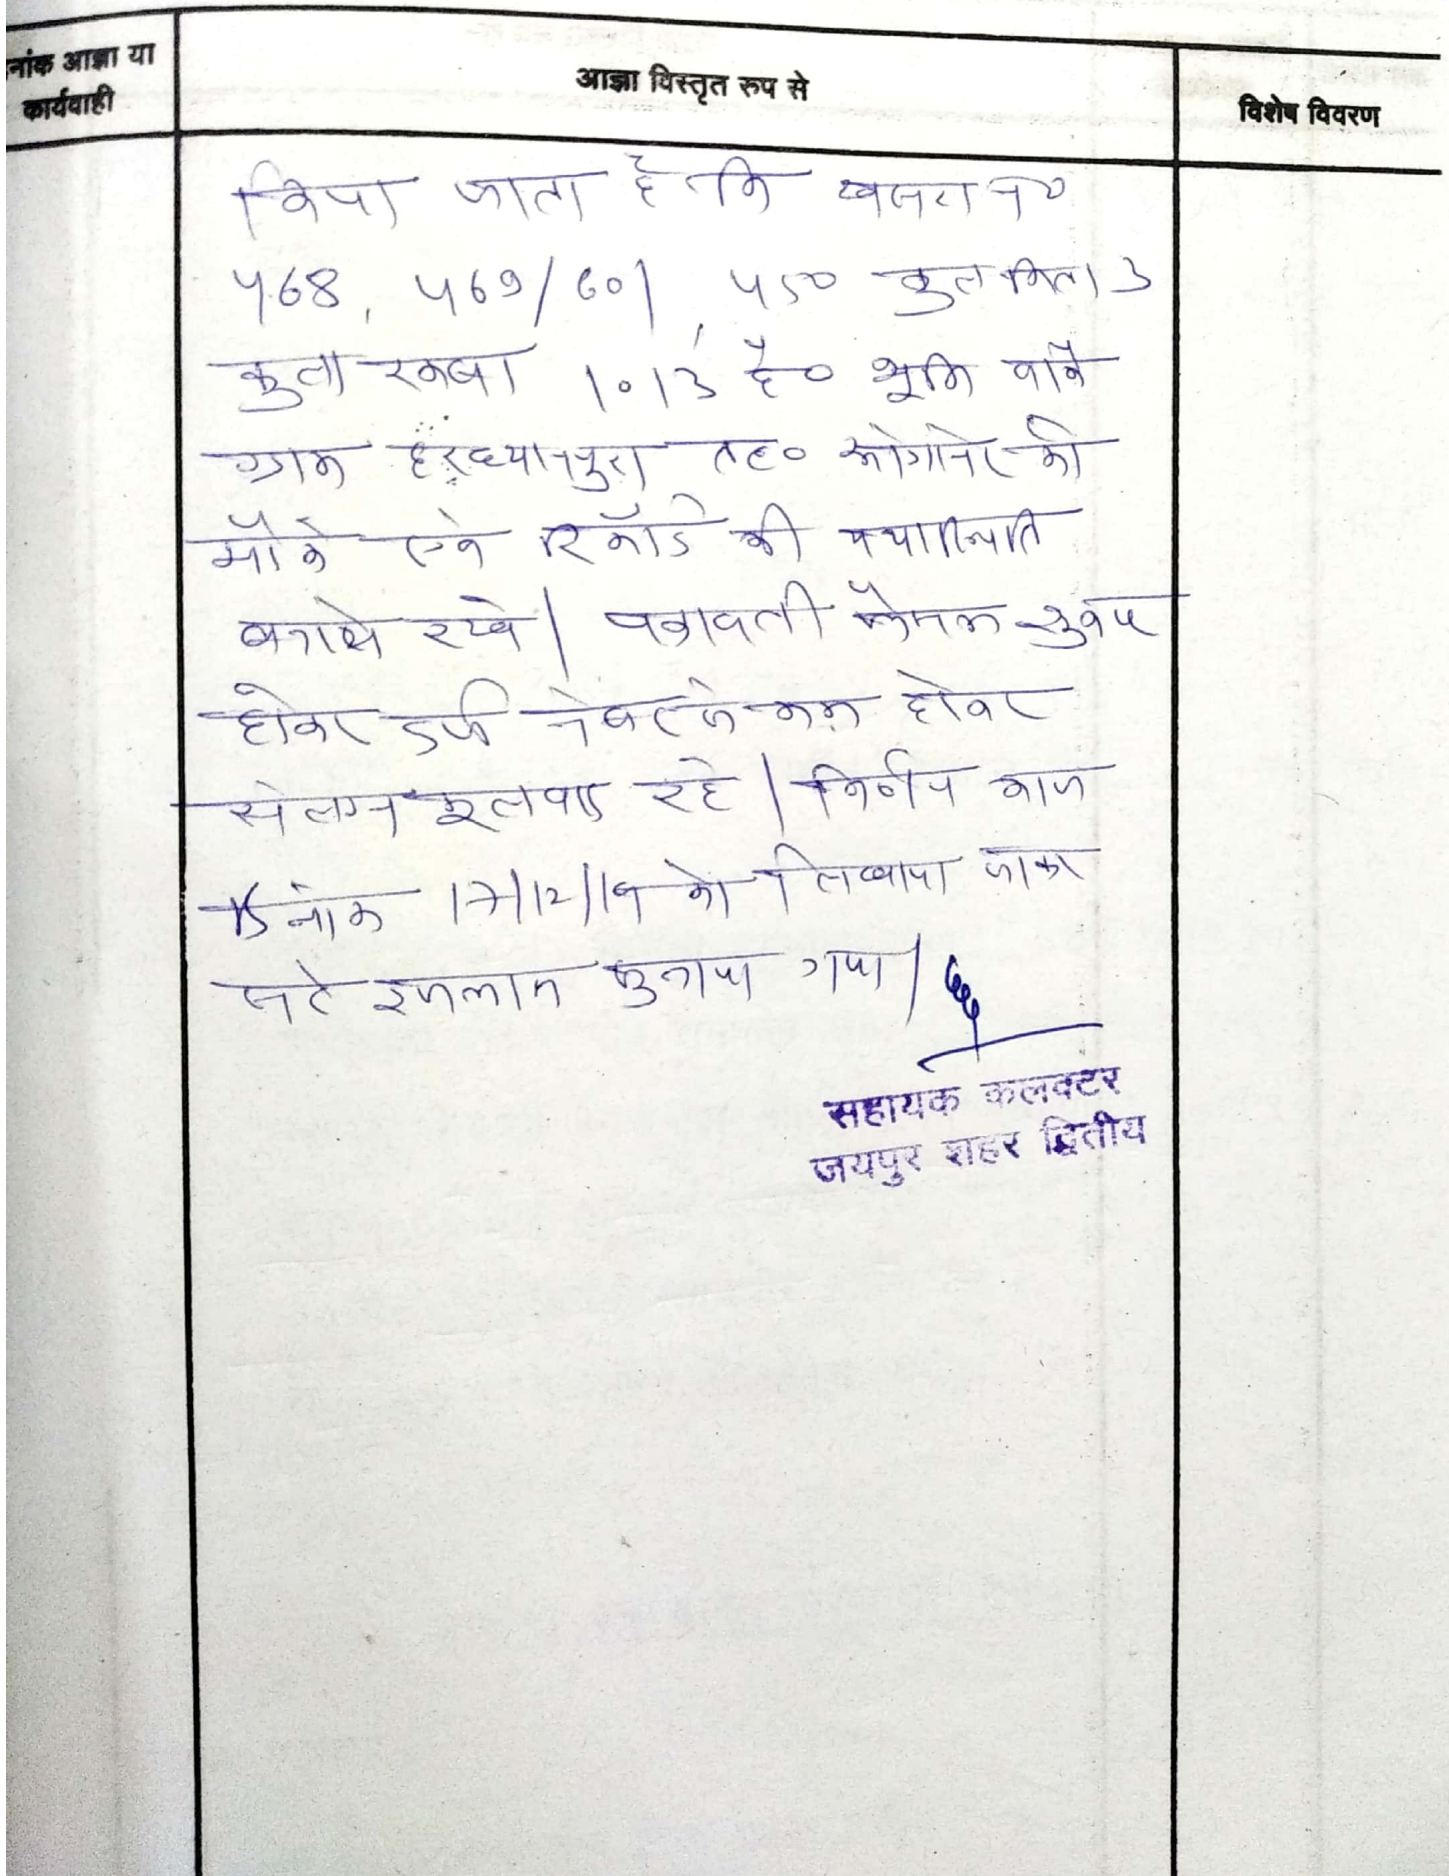 नांक आज्ञा या
कार्यवाही
आज्ञा विस्तृत रूप से
विशेष विवरण
किया जाता है कि खसरा न०
468, 469/601, 450 कुल किता 3
कुल रकबा 1.13 है० भूमि वाके
ग्राम हरध्यानपुरा तह० सांगानेर की
मौके एवं रिकॉर्ड की यथास्थिति
बनाये रखे। पत्रावली फैसल शुमार
होकर दर्ज नंबर से कम होकर
संलग्न मूलवाद रहे। निर्णय आज
दिनांक 17/12/19 को लिखाया जाकर
सरे इजलास सुनाया गया।
सहायक कलक्टर
जयपुर शहर द्वितीय